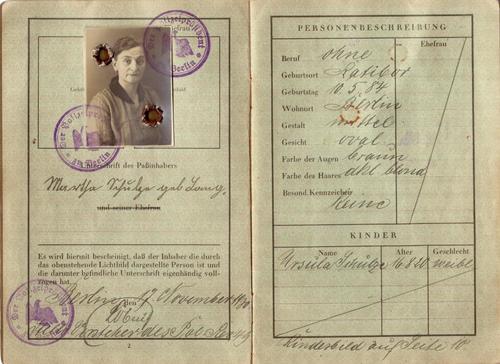 Der Polizeipräsident
in Berlin
Der Polizeipräsident
in Berlin
Unterschrift des Paßinhabers
Martha Schulze geb. Lang.
und seiner Ehefrau
Es wird hiermit bescheinigt, daß der Inhaber die durch
das obenstehende Lichtbild dargestellte Person ist und
die darunter befindliche Unterschrift eigenhändig voll-
zogen hat.
Berlin, den November
2
PERSONENBESCHREIBUNG
Ehefrau
Beruf ohne
Geburtsort Ratibor
Geburtstag 10.5.84
Wohnort Berlin
Gestalt mittel
Gesicht oval
Farbe der Augen braun
Farbe des Haares dkl. blond
Besond. Kennzeichen
Keine
KINDER
Name Alter Geschlecht
Ursula Schulze 16.8.20 weibl.
Kinderbild auf Seite 10.